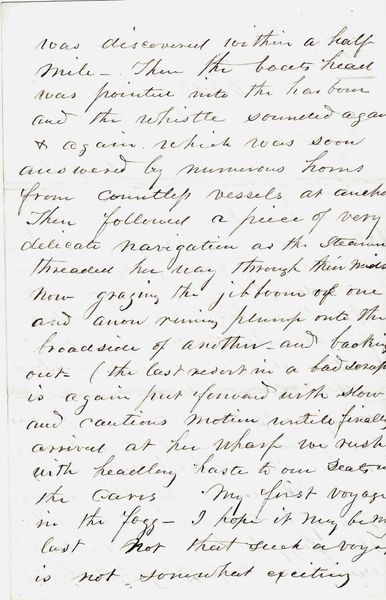 was discovered within a half
mile - Then the boats head
was pointed into the harbour
and the whistle sounded again
& again which was soon
answered by numerous horns
from countless vessels at ancho
Then followed a piece of very
delicate navigation as the Steamer
threaded her way through their mids
now grazing the jibboom of one
and anon runing plump onto the
broadside of another - and backing
out - (the last resort in a bad scrap
is again put forward with slow
and cautious motion untile finally
arrived at her wharf we rush
with headlong haste to our Seats in
the Carrs My first voyage
in the fogg - I hope it may be m
last Not that such a voya
is not somewhat exciting